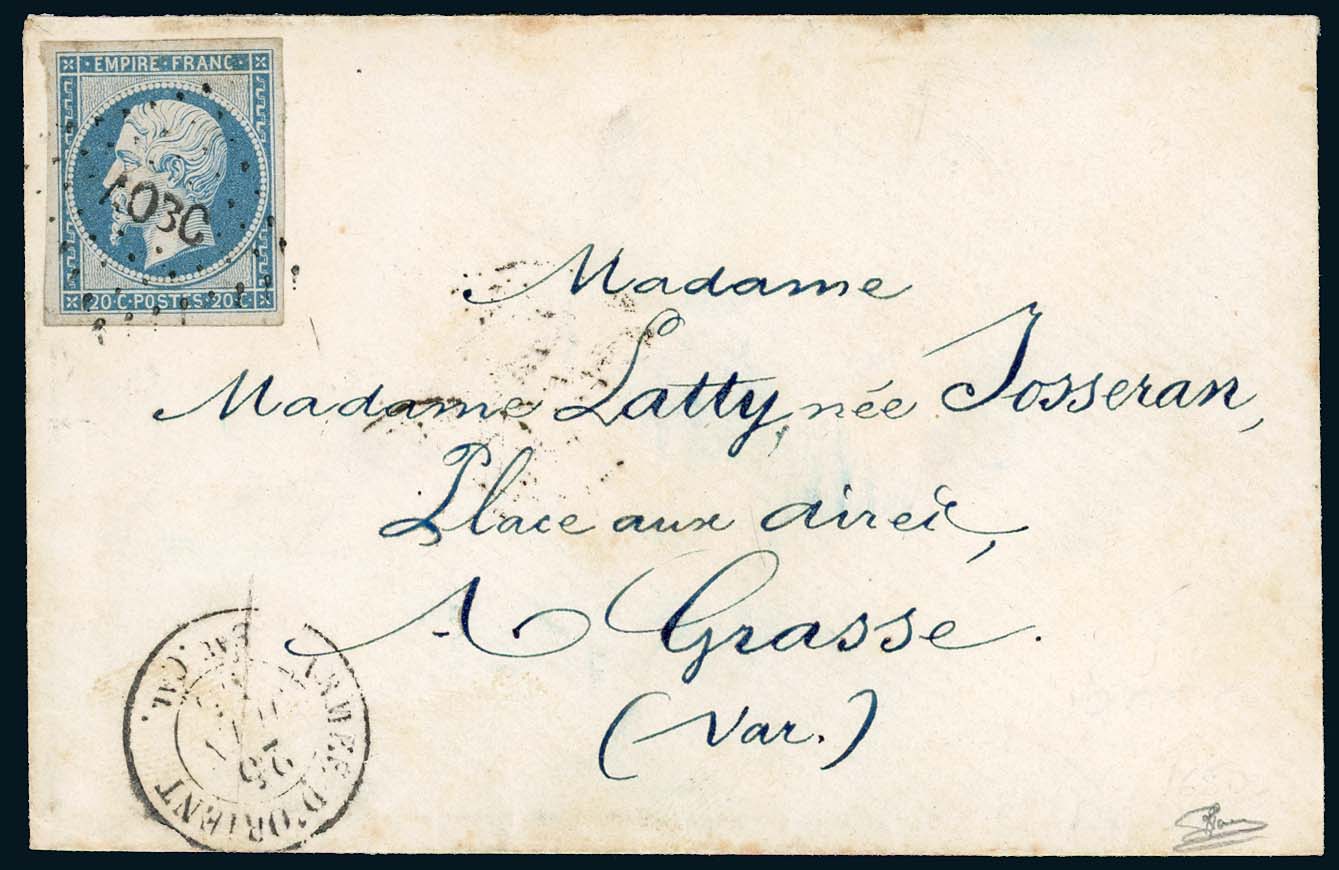 EMPIRE · FRANC ·
20 · C · POSTES · 20 · C ·
Madame
Madame Latty, née Josseran,
Place aux aires,
A Grasse.
(Var.)
ARMÉE D'ORIENT
CAV. CAL.